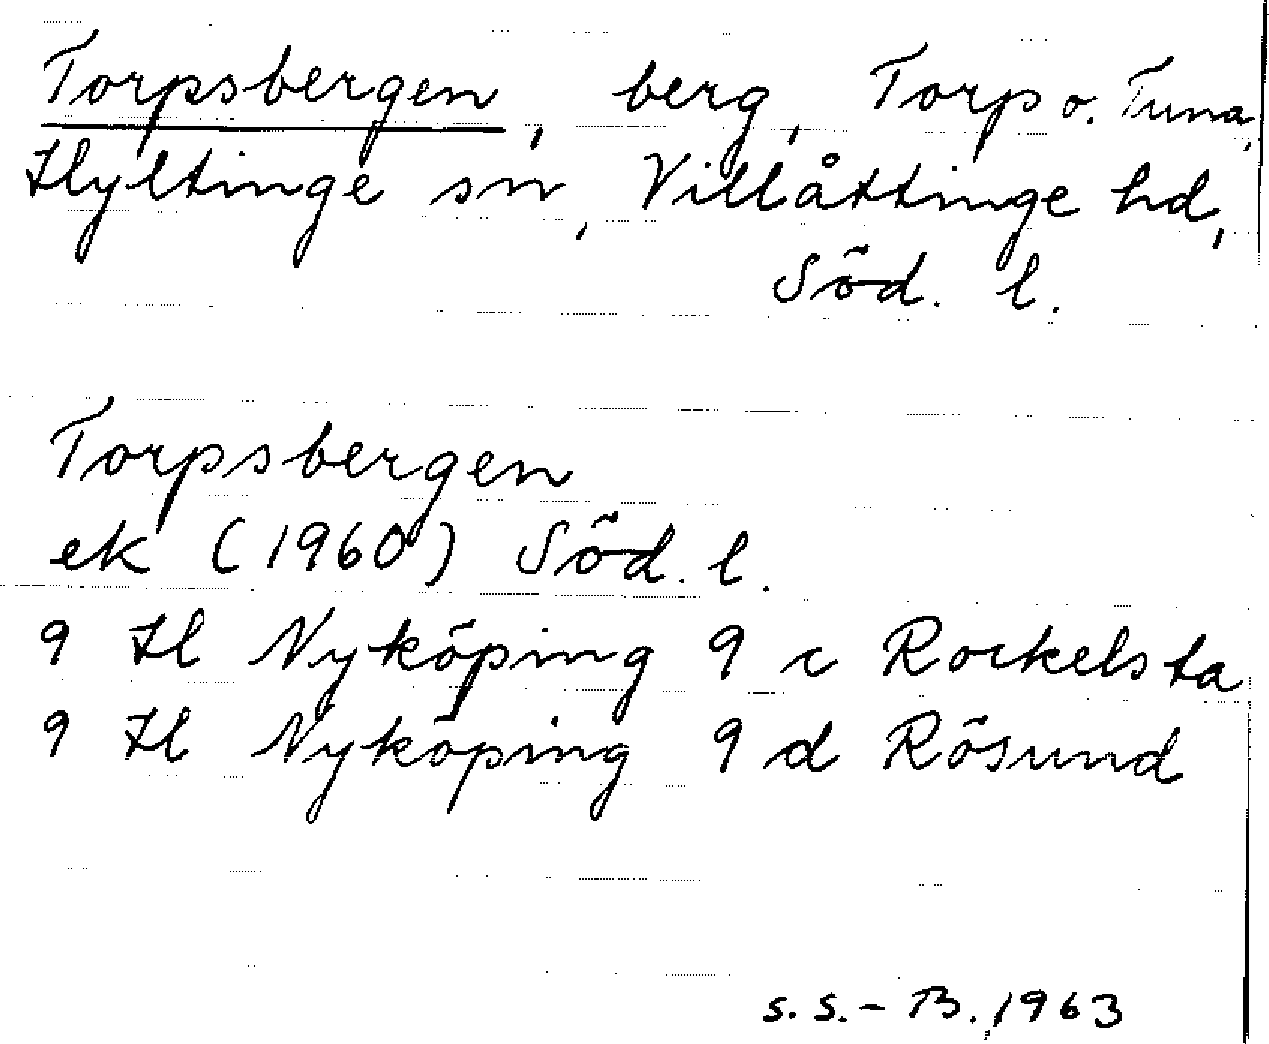 Torpsbergen, berg, Torp o. Tuna,
Hyltinge sn, Villåttinge hd,
Söd. l.
Torpsbergen
ek (1960) Söd. l.
9 H Nyköping 9 c Rockelsta
9 H Nyköping 9 d Rösund
S. S. - B. 1963